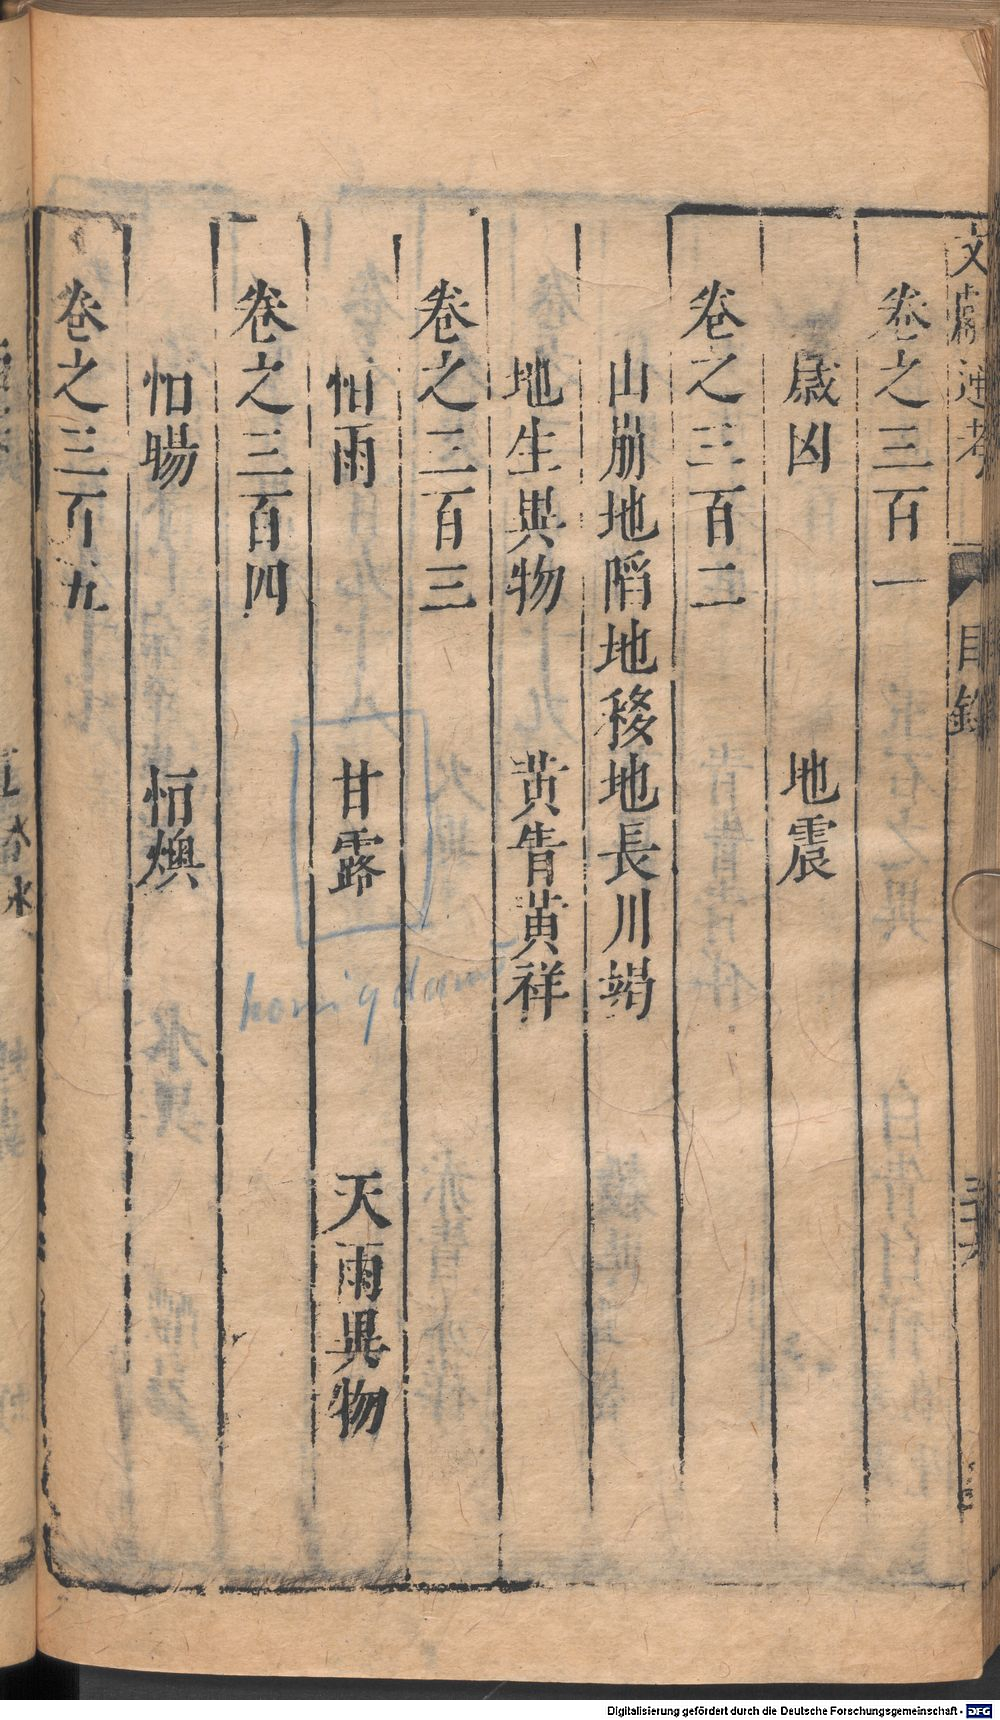 文獻通考 目錄 三十六
卷之三百一
歲凶 地震
卷之三百二
山崩地陷地移地長川竭
地生異物 黃眚黃祥
卷之三百三
恒雨 甘露 天雨異物
honigdam
卷之三百四
恒暘 恒燠
卷之三百五
Digitalisierung gefördert durch die Deutsche Forschungsgemeinschaft - DFG